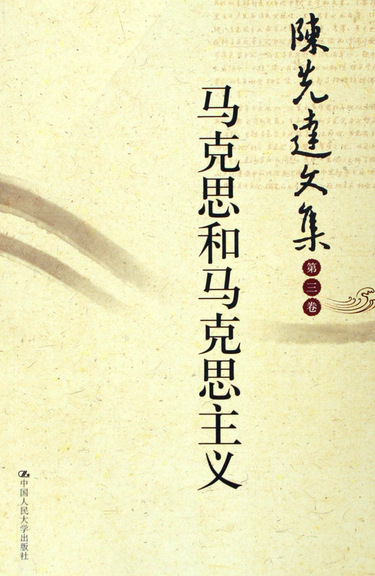 陳先達文集
第三卷
马克思和马克思主义
中国人民大学出版社